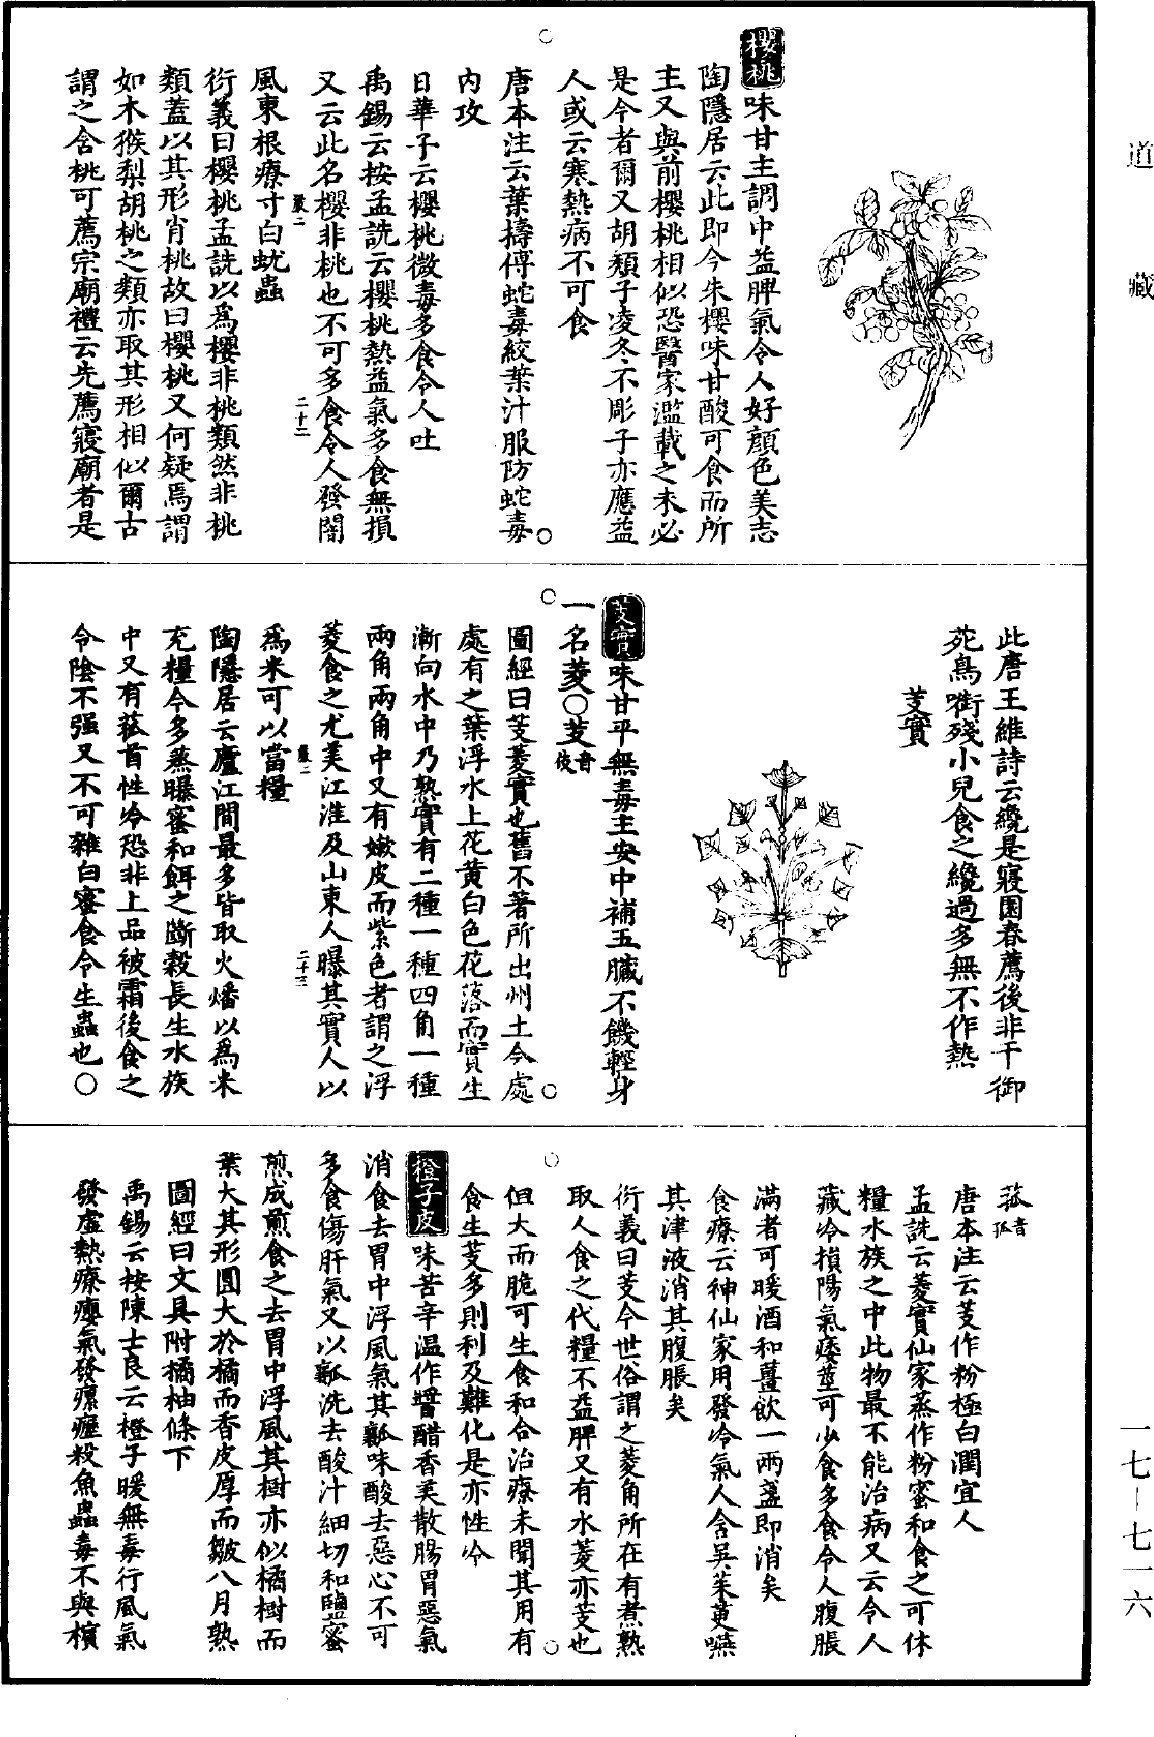 道藏
櫻桃味甘主調中益脾氣令人好顔色美志
陶隱居云此即今朱櫻味甘酸可食而所
主又與前櫻桃相似恐醫家濫載之未必
是今者爾又胡頹子凌冬不彫子亦應益
人或云寒熱病不可食
唐本注云葉擣傅蛇毒絞葉汁服防蛇毒
內攻
日華子云櫻桃微毒多食令人吐
禹錫云按孟詵云櫻桃熱益氣多食無損
又云此名櫻非桃也不可多食令人發闇
嚴二 二十二
風東根療寸白蚘蟲
衍義曰櫻桃孟詵以爲櫻非桃類然非桃
類蓋以其形肖桃故曰櫻桃又何疑焉謂
如木猴梨胡桃之類亦取其形相似爾古
謂之含桃可薦宗廟禮云先薦寢廟者是
此唐王維詩云纔是寢園春薦後非干御
苑鳥銜殘小兒食之纔過多無不作熱
芰實
芰實味甘平無毒主安中補五臟不饑輕身
一名菱○芰音伎
圖經曰芰菱實也舊不著所出州土今處
處有之葉浮水上花黃白色花落而實生
漸向水中乃熟實有二種一種四角一種
兩角兩角中又有嫩皮而紫色者謂之浮
菱食之尤美江淮及山東人曝其實人以
嚴二 二十三
爲米可以當糧
陶隱居云廬江間最多皆取火燔以爲米
充糧今多蒸曝蜜和餌之斷穀長生水族
中又有菰首性冷恐非上品被霜後食之
令陰不强又不可雜白蜜食令生蟲也○
菰音孤
唐本注云芰作粉極白潤宜人
孟詵云菱實仙家蒸作粉蜜和食之可休
糧水族之中此物最不能治病又云令人
藏冷損陽氣痿莖可少食多食令人腹脹
滿者可暖酒和薑飲一兩盞即消矣
食療云神仙家用發冷氣人含吳茱萸嚥
其津液消其腹脹矣
衍義曰芰今世俗謂之菱角所在有煮熟
取人食之代糧不益脾又有水菱亦芰也
但大而脆可生食和合治療未聞其用有
食生芰多則利及難化是亦性冷
橙子皮味苦辛温作醬醋香美散腸胃惡氣
消食去胃中浮風氣其瓤味酸去惡心不可
多食傷肝氣又以瓤洗去酸汁細切和鹽蜜
煎成煎食之去胃中浮風其樹亦似橘樹而
葉大其形圓大於橘而香皮厚而皺八月熟
圖經曰文具附橘柚條下
禹錫云按陳士良云橙子暖無毒行風氣
發虛熱療癭氣發瘰癧殺魚蟲毒不與檳
一七—七一六